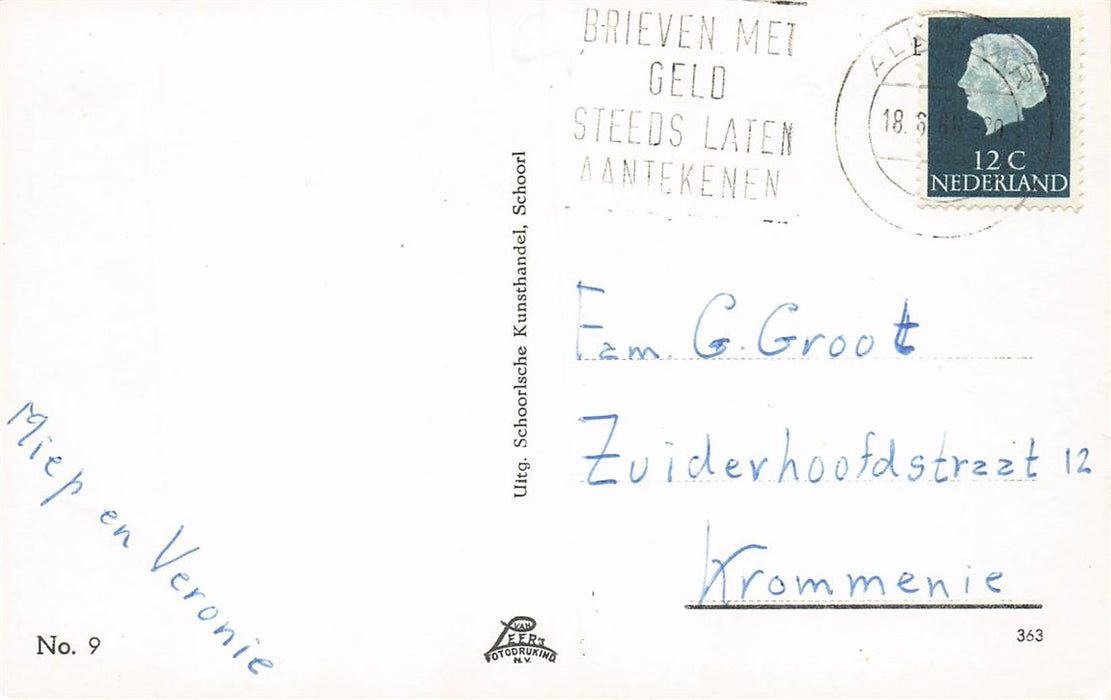 BRIEVEN MET
GELD
STEEDS LATEN
AANTEKENEN
ALKMAAR
18.6.68-20
12 C
NEDERLAND
Uitg. Schoorlsche Kunsthandel, Schoorl
Fam. G. Groot
Zuiderhoofdstraat 12
Krommenie
Miep en Veronie
No. 9
VAN
LEER'S
FOTODRUKIND.
N.V.
363